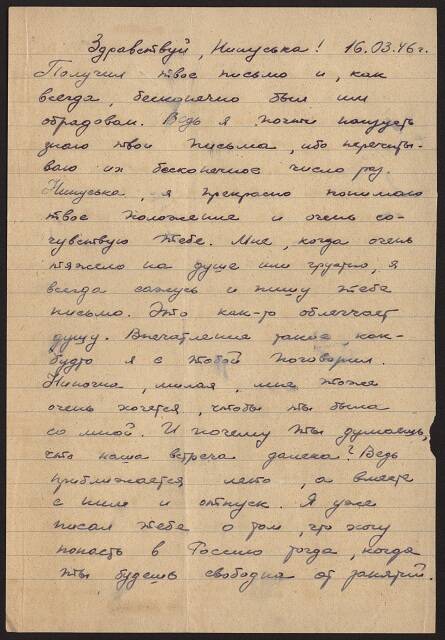 Здравствуй, Нинуська! 16.03.46 г.
Получил твое письмо и, как
всегда, бесконечно был им
обрадован. Ведь я почти наизусть
знаю твои письма, ибо перечиты-
ваю их бесконечное число раз.
Нинуська, я прекрасно понимаю
твое положение и очень со-
чувствую тебе. Мне, когда очень
тяжело на душе или грустно, я
всегда сажусь и пишу тебе
письмо. Это как-то облегчает
душу. Впечатление такое, как-
будто я с тобой поговорил.
Ниночка, милая, мне тоже
очень хочется, чтобы ты была
со мной. И почему ты думаешь,
что наша встреча далека? Ведь
приближается лето, а вместе
с ним и отпуск. Я уже
писал тебе о том, что хочу
попасть в Россию тогда, когда
ты будешь свободна от занятий.